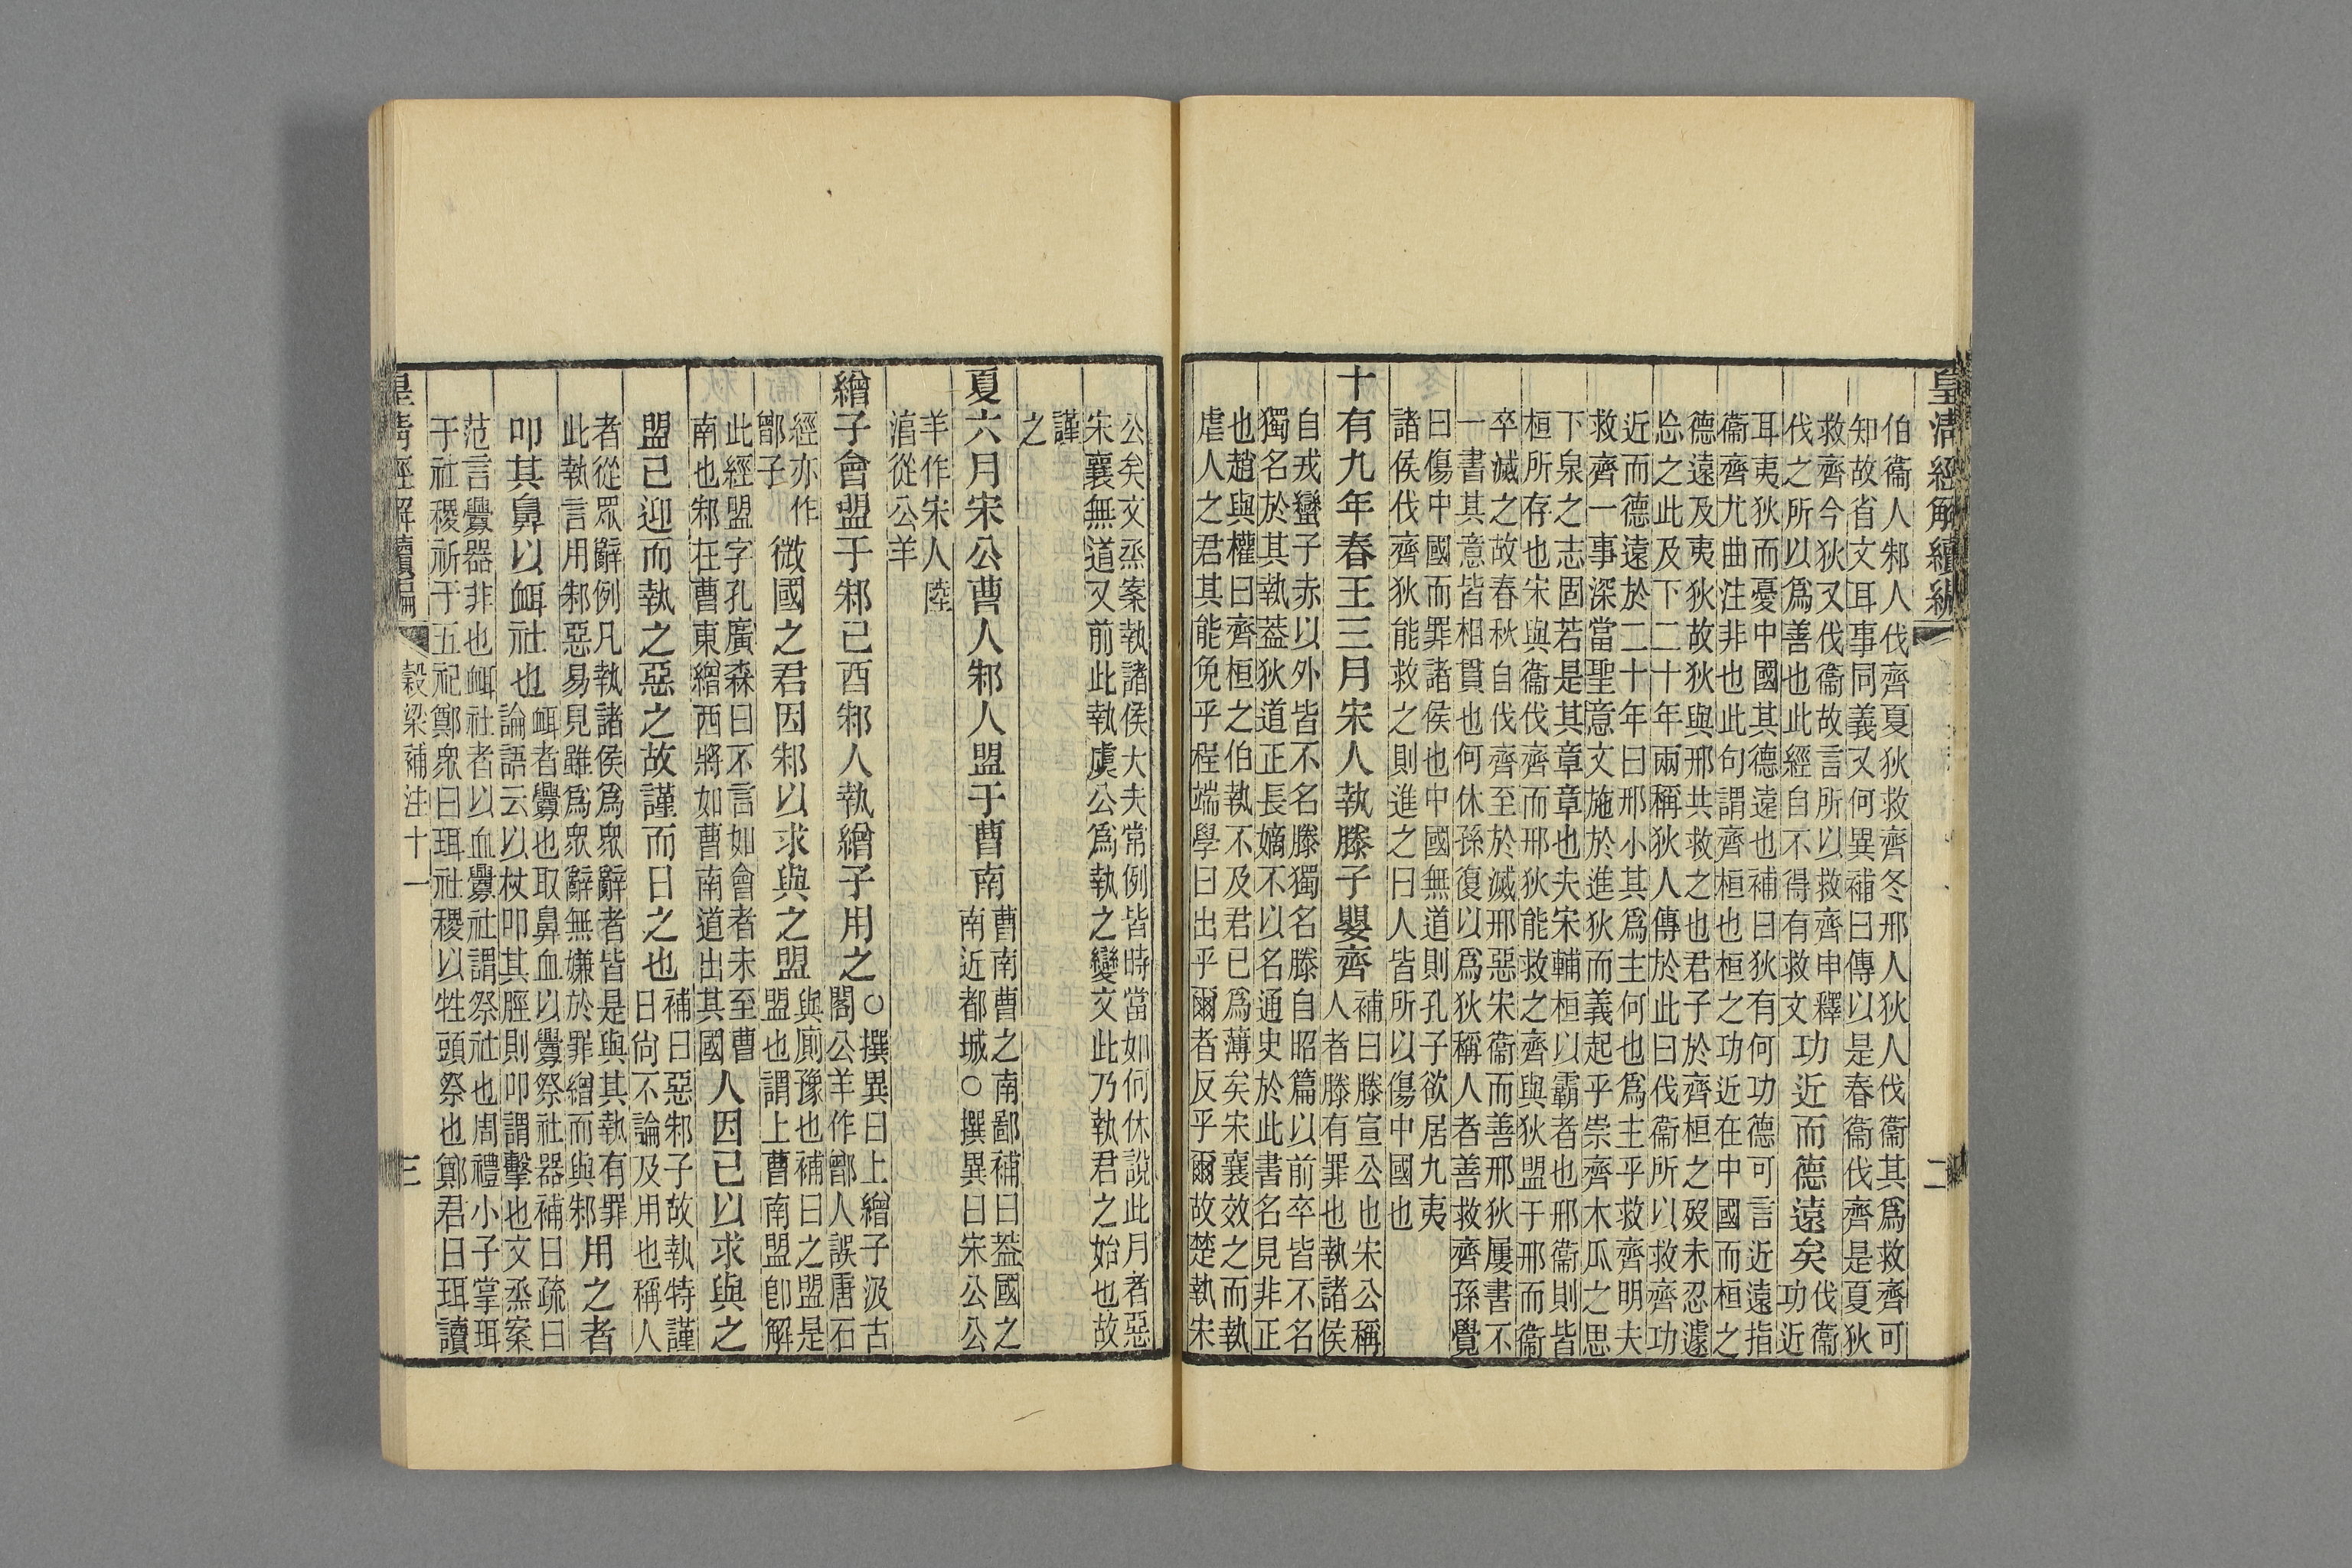 皇清經解續編
二
伯衞人邾人伐齊夏狄救齊冬邢人狄人伐衞其爲救齊可
知故省文耳事同義又何異補曰傳以是春衞伐齊是夏狄
救齊今狄又伐衞故言所以救齊申釋
伐之所以爲善也此經自不得有救文
功近而德遠矣
伐衞
功近
耳夷狄而憂中國其德遠也補曰狄有何功德可言近遠指
衞齊尤曲注非也此句謂齊桓也桓之功近在中國而桓之
德遠及夷狄故狄與邢共救之也君子於齊桓之歿未忍遽
忘之此及下二十年兩稱狄人傳於此曰伐衞所以救齊功
近而德遠於二十年曰邢小其爲主何也爲主乎救齊明夫
救齊一事深當聖意文施於進狄而義起乎崇齊木瓜之思
下泉之志固若是其章章也夫宋輔桓以霸者也邢衞則皆
桓所存也宋與衞伐齊而邢狄能救之齊與狄盟于邢而衞
卒滅之故春秋自伐齊至於滅邢惡宋衞而善邢狄屢書不
一書其意皆相貫也何休孫復以爲狄稱人者善救齊孫覺
曰傷中國而罪諸侯也中國無道則孔子欲居九夷
諸侯伐齊狄能救之則進之曰人皆所以傷中國也
十有九年春王三月宋人執滕子嬰齊
補曰滕宣公也宋公稱
人者滕有罪也執諸侯
自戎蠻子赤以外皆不名滕獨名滕自昭篇以前卒皆不名
獨名於其執葢狄道正長嫡不以名通史於此書名見非正
也趙與權曰齊桓之伯執不及君已爲薄矣宋襄效之而執
虐人之君其能免乎程端學曰出乎爾者反乎爾故楚執宋
公矣文烝案執諸侯大夫常例皆時當如何休說此月者惡
宋襄無道又前此執虞公爲執之變文此乃執君之始也故
謹
之
夏六月宋公曹人邾人盟于曹南
曹南曹之南鄙補曰葢國之
南近都城○撰異曰宋公公
羊作宋人陸
淳從公羊
繒子會盟于邾己酉邾人執繒子用之
○撰異曰上繒子汲古
閣公羊作鄫人誤唐石
經亦作
鄫子
微國之君因邾以求與之盟
與廁豫也補曰之盟是
盟也謂上曹南盟卽解
此經盟字孔廣森曰不言如會者未至曹
南也邾在曹東繒西將如曹南道出其國
人因己以求與之
盟己迎而執之惡之故謹而日之也
補曰惡邾子故執特謹
日尙不論及用也稱人
者從眾辭例凡執諸侯爲眾辭者皆是與其執有罪
此執言用邾惡易見雖爲眾辭無嫌於罪繒而與邾
用之者
叩其鼻以衈社也
衈者釁也取鼻血以釁祭社器補曰疏曰
論語云以杖叩其脛則叩謂擊也文烝案
范言釁器非也衈社者以血釁社謂祭社也周禮小子掌珥
于社稷祈于五祀鄭眾曰珥社稷以牲頭祭也鄭君曰珥讀
皇清經解續編
穀梁補注十一
三